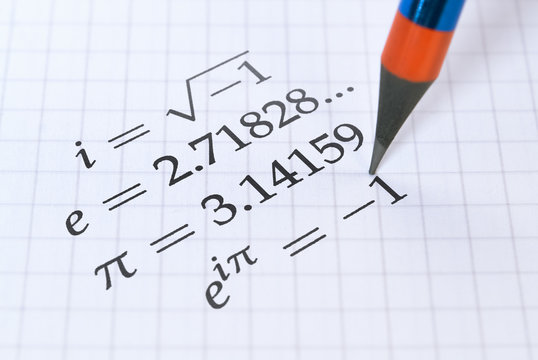 i = √−1
e = 2.71828...
π = 3.14159
e^{iπ} = −1